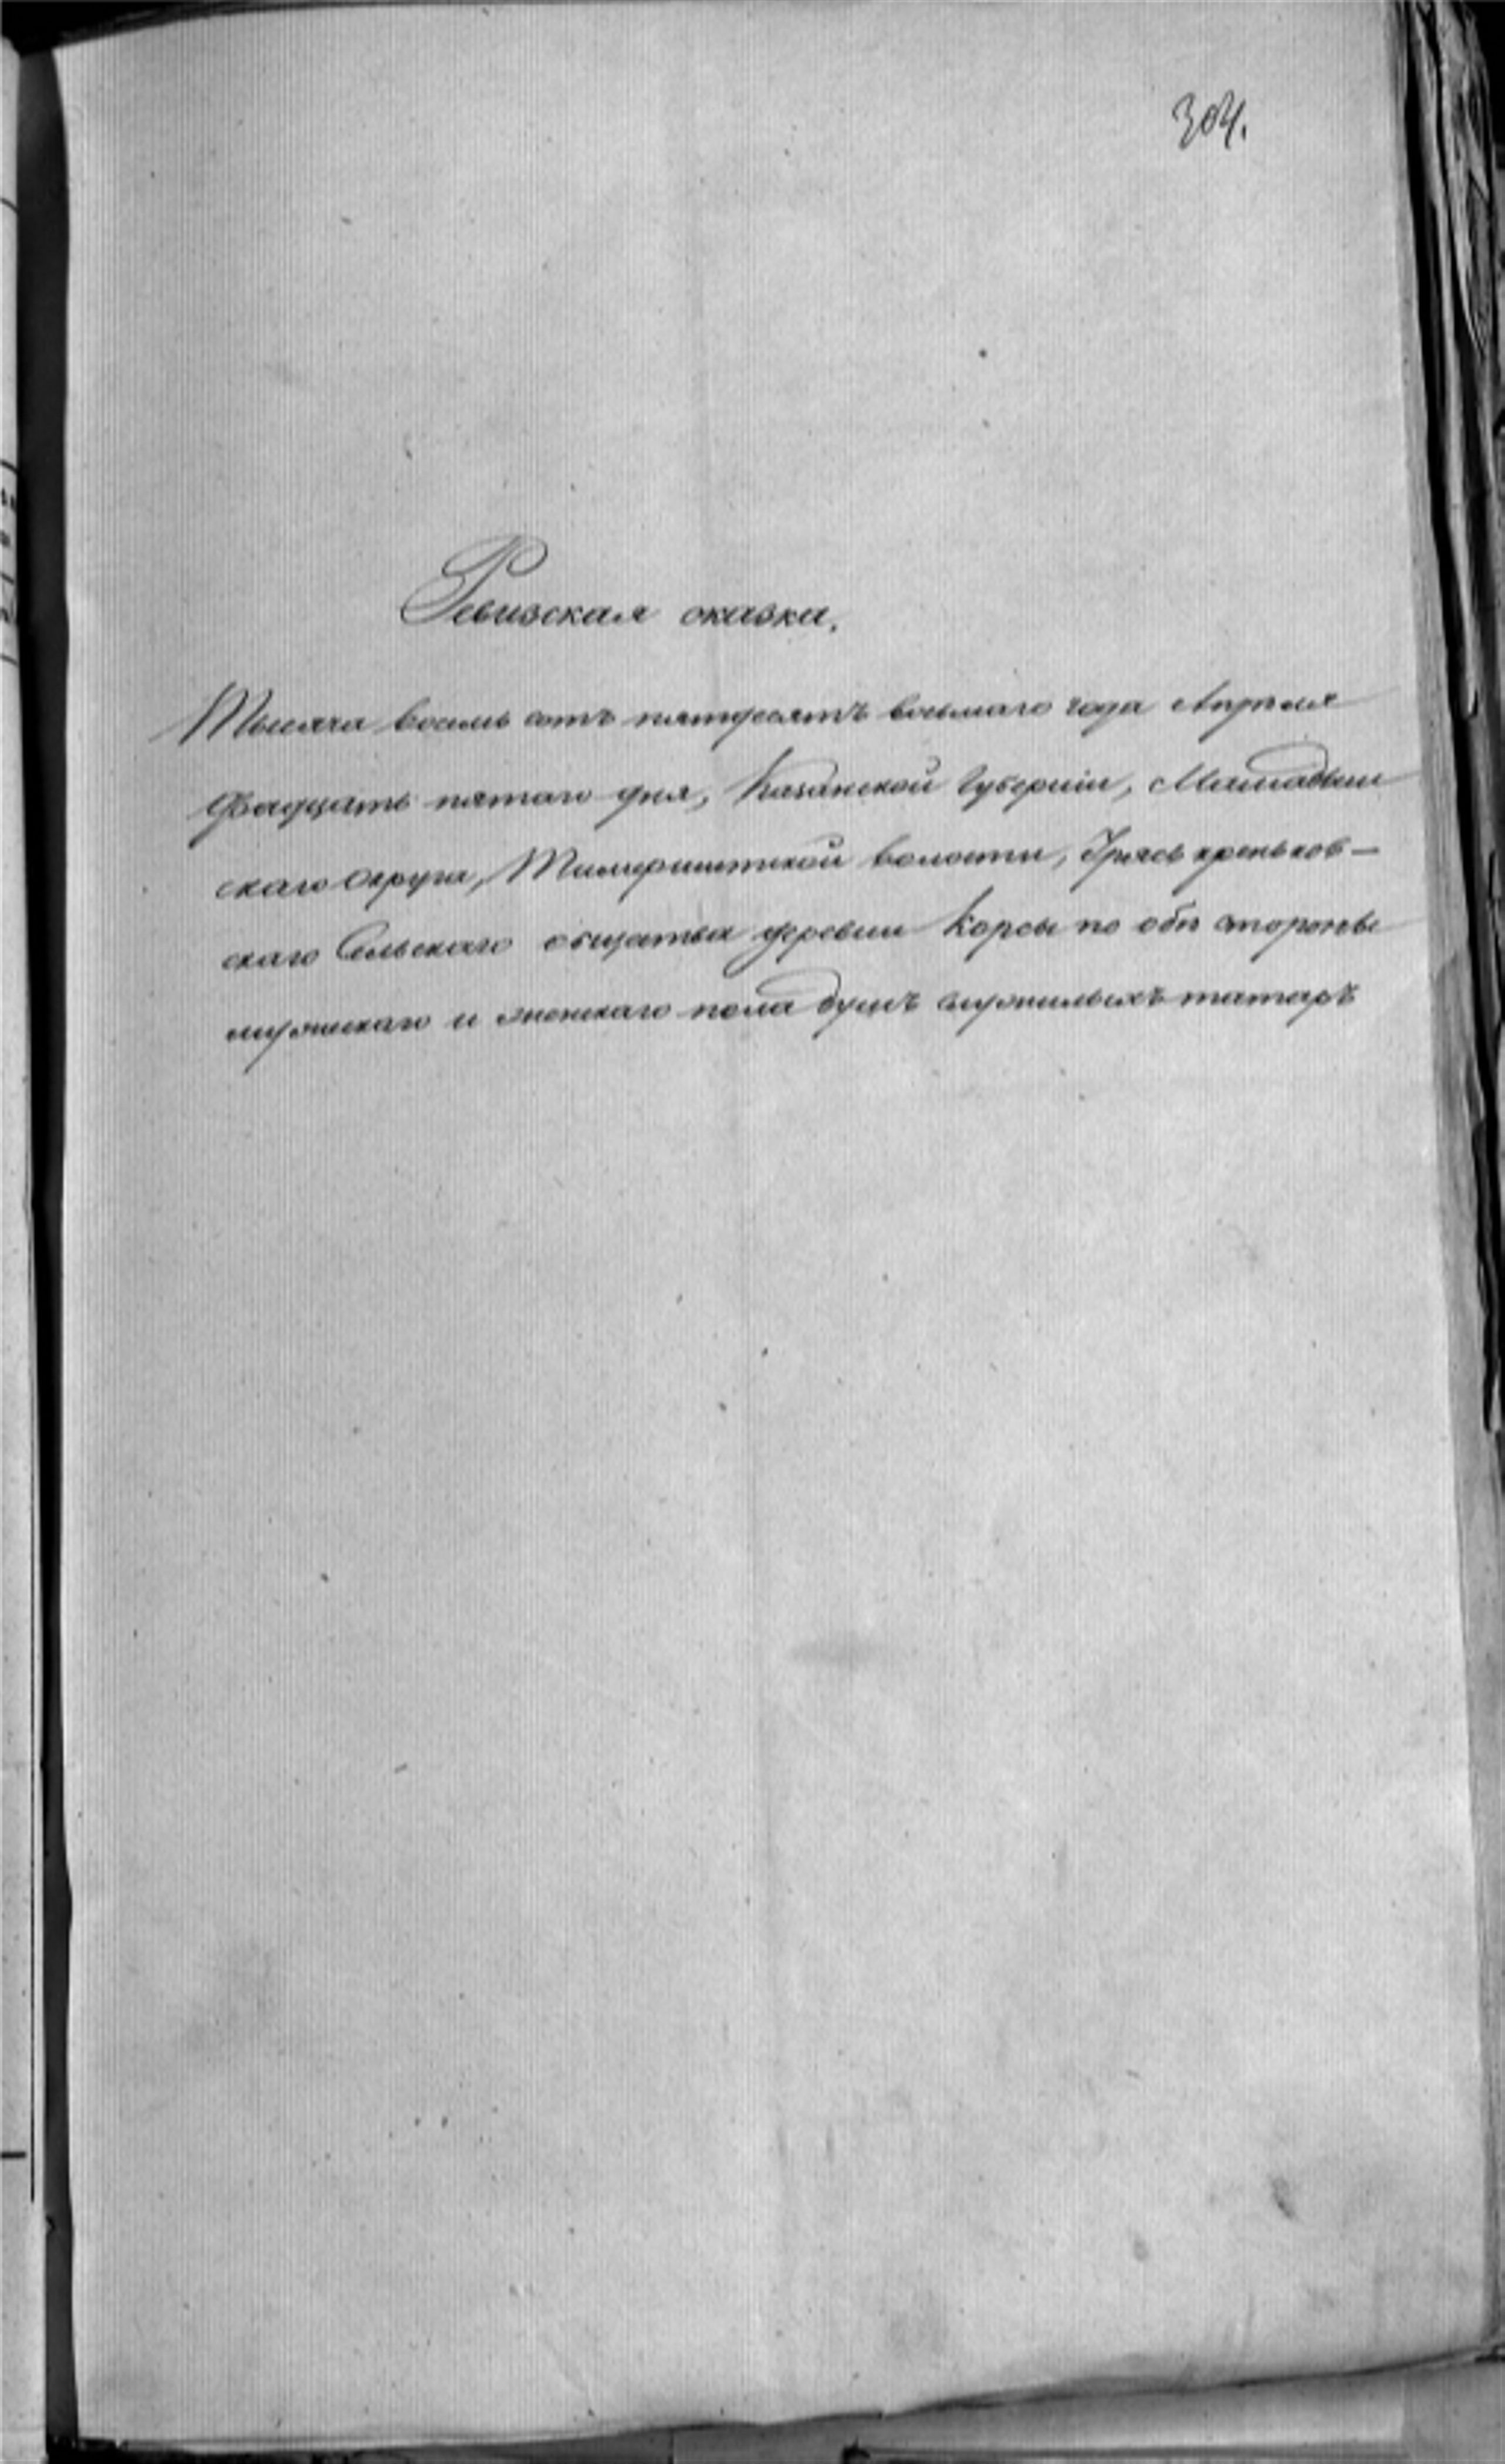 304.
Ревизская сказка.
Тысяча восемь сотъ пятдесятъ восьмаго года Апрѣля
двадцать пятаго дня, Казанской Губерніи, Мамадыш
скаго Округа, волости,
скаго Сельскаго общества деревни Корсы по обѣ стороны
мужескаго и женскаго пола душъ служилыхъ татаръ